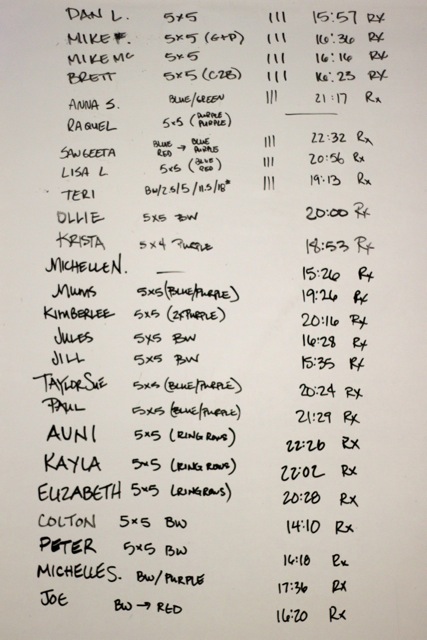 DAN L. 5x5 III 15:57 Rx
MIKE F. 5x5 (G+D) III 16:36 Rx
MIKE MC 5x5 III 16:16 Rx
BRETT 5x5 (C2B) III 16:23 Rx
ANNA S. BLUE/GREEN III 21:17 Rx
RAQUEL 5x5 (PURPLE PURPLE) —
SANGEETA BLUE RED → BLUE PURPLE III 22:32 Rx
LISA L 5x5 (BLUE RED) III 20:56 Rx
TERI BW/2.5/5/11.5/18* III 19:13 Rx
OLLIE 5x5 BW 20:00 Rx
KRISTA 5x4 PURPLE 18:53 Rx
MICHELLE N. — 15:26 Rx
MUMS 5x5 (BLUE/PURPLE) 19:26 Rx
KIMBERLEE 5x5 (2xPURPLE) 20:16 Rx
JULES 5x5 BW 16:28 Rx
JILL 5x5 BW 15:35 Rx
TAYLOR SUE 5x5 (BLUE/PURPLE) 20:24 Rx
PAUL 5x5 (BLUE/PURPLE) 21:29 Rx
AUNI 5x5 (RING ROWS) 22:26 Rx
KAYLA 5x5 (RING ROWS) 22:02 Rx
ELIZABETH 5x5 (RING ROWS) 20:28 Rx
COLTON 5x5 BW 14:10 Rx
PETER 5x5 BW 16:18 Rx
MICHELLE S. BW/PURPLE 17:36 Rx
JOE BW → RED 16:20 Rx